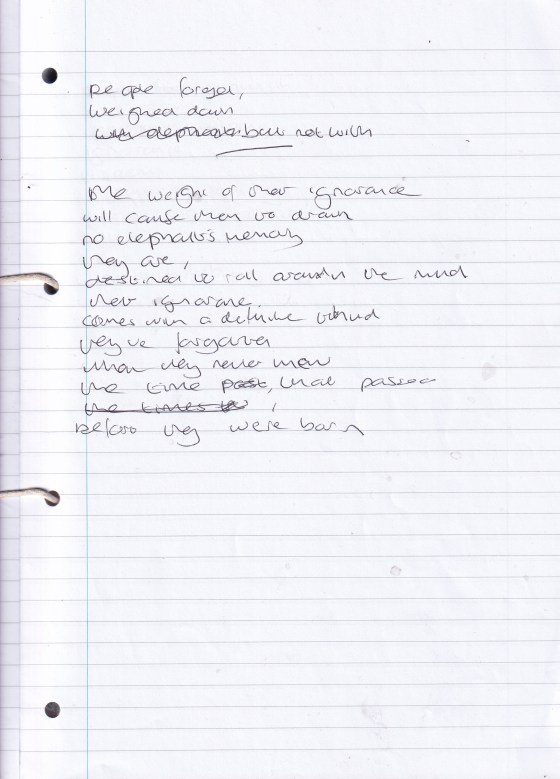 people forget,
weighed down
with elephants but not with
the weight of their ignorance
will cause them to drown
no elephants memory
they are,
destined to roll around in the mud
their ignorance
comes with a definite
they've forgotten
what they never knew
the time past, that passed
the times
before they were born